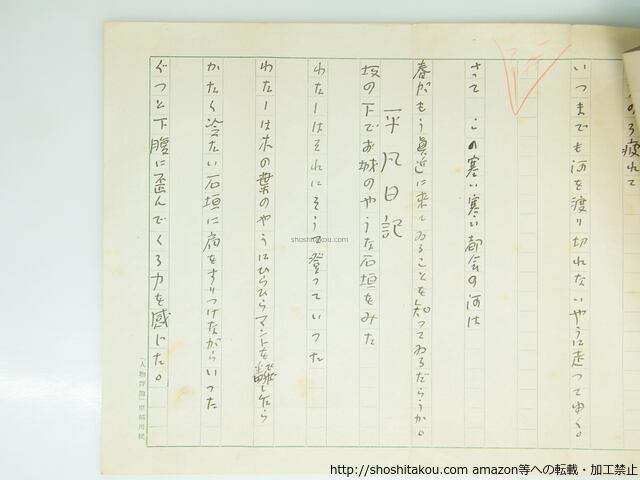 疲れて
いつまでも河を渡り切れないやうに走つてゆく。
さて この寒い寒い都会の河は
春がもう真近に来てゐることを知つてゐるだらうか。
平凡日記
坂の下でお城のやうな石垣をみた
わたしはそれにそうて登っていつた
わたしは木の葉のやうにひらひらマントを飜しながら
かたく冷たい石垣に肩をすりつけながらいつた
ぐつと下腹に歪んでくる力を感じた。
「人物評論」原稿用紙
shoshitakou.com
http://shoshitakou.com amazon等への転載・加工禁止